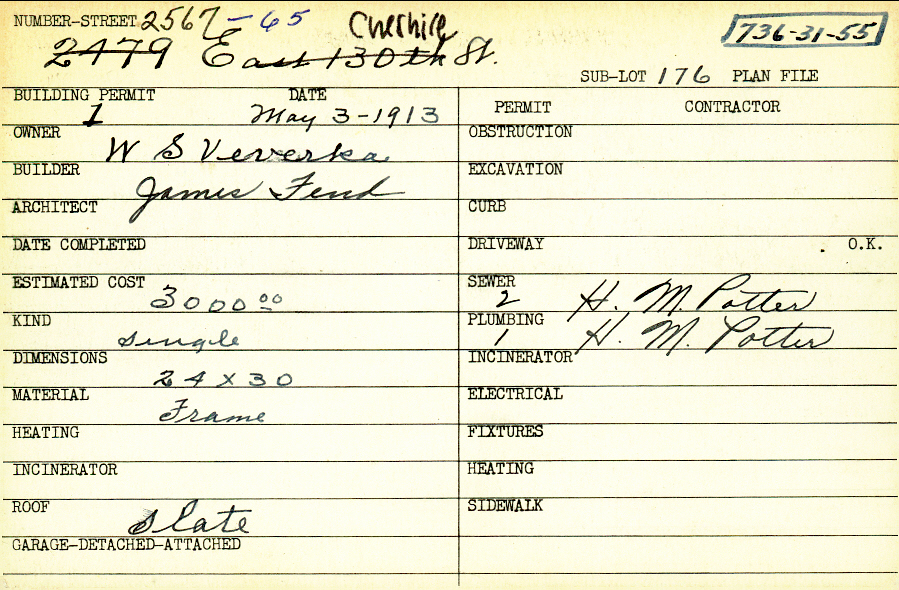 NUMBER-STREET 2567-65 Cheshire
2479 East 130th St.
736-31-55
SUB-LOT 176 PLAN FILE
BUILDING PERMIT DATE
1 May 3-1913
OWNER W S Veverka
BUILDER James Fend
ARCHITECT
DATE COMPLETED
ESTIMATED COST 3000 00
KIND single
DIMENSIONS 24 x 30
MATERIAL Frame
HEATING
INCINERATOR
ROOF slate
GARAGE-DETACHED-ATTACHED
PERMIT CONTRACTOR
OBSTRUCTION
EXCAVATION
CURB
DRIVEWAY . O.K.
SEWER 2 H. M. Potter
PLUMBING 1 H. M. Potter
INCINERATOR
ELECTRICAL
FIXTURES
HEATING
SIDEWALK